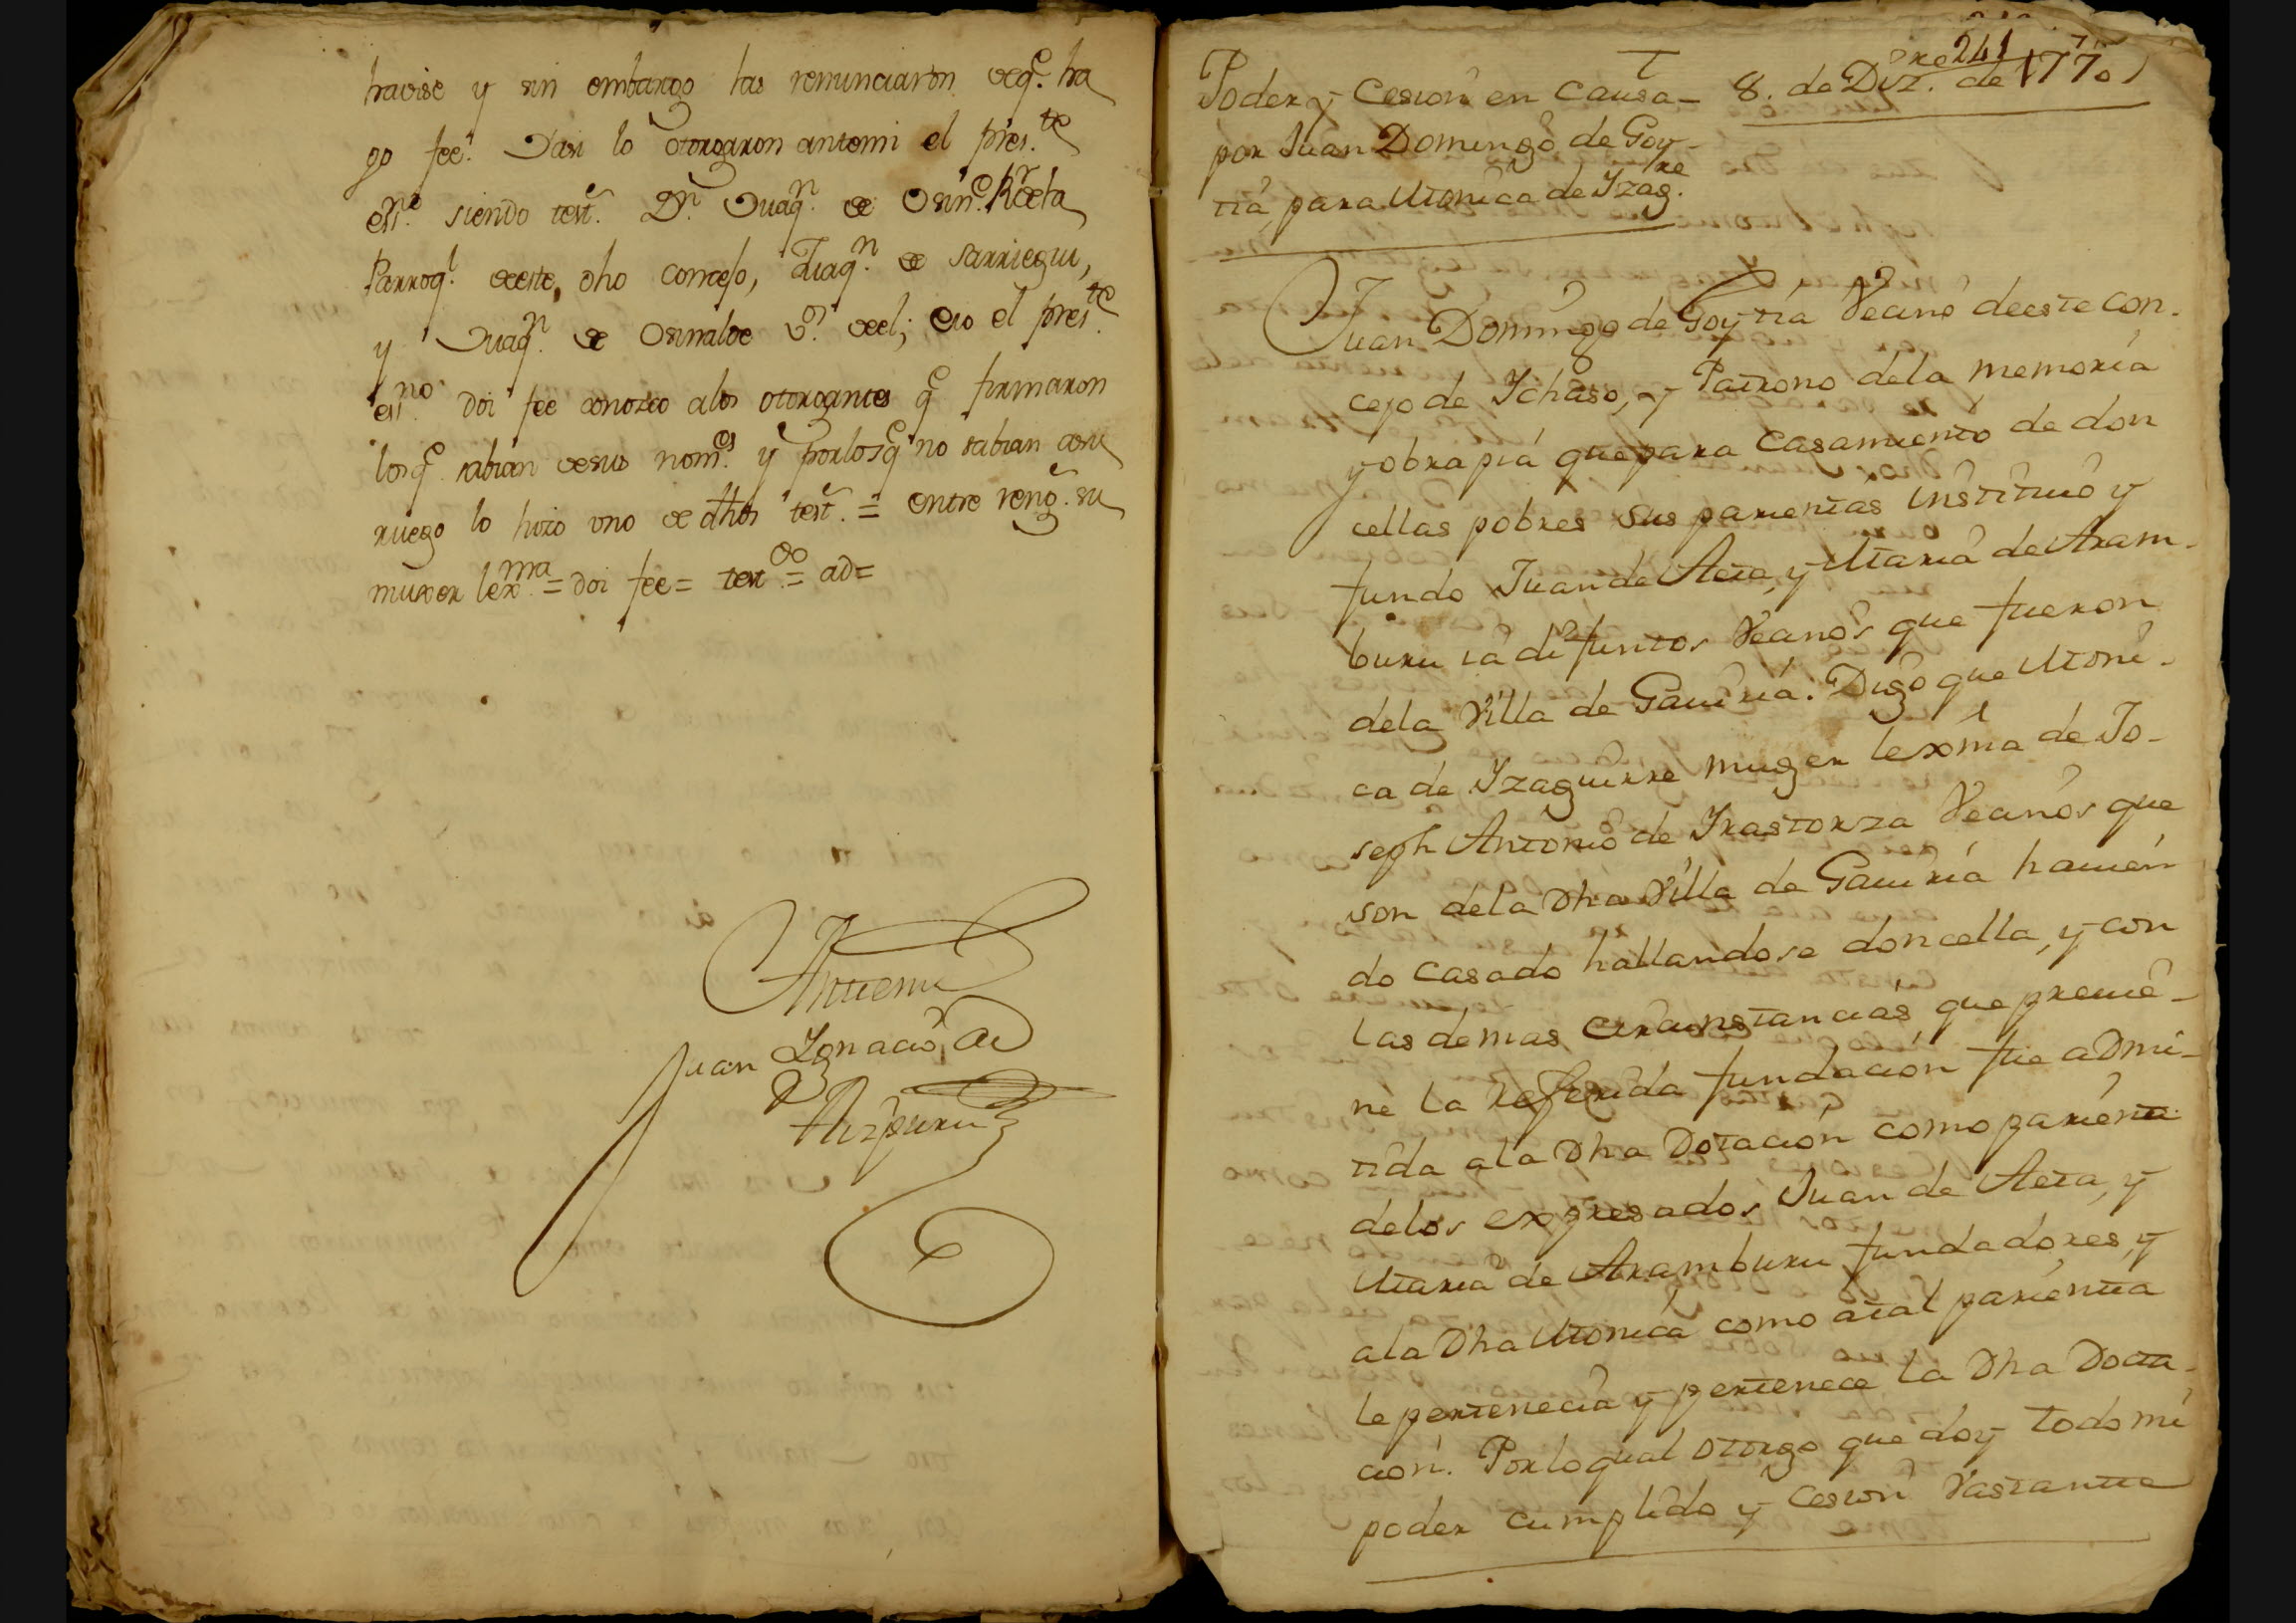 havise y sin embargo las renunciaron deq.e ha
go fee. Yasi lo otorgaron antemi el pres.te
ess.no siendo test.s Dn. Juaq.n de Osin.e R.r dela
Parroq.l deeste dho concejo, Juaq.n de Sarriegui,
y Juaq.n de Osinalde v.s deel; eio el pres.te
ess.no doi fee conozco alos otorgantes q.e firmaron
losq.e sabian desus nom.es y porlosq.e no sabian asu
ruego lo hizo uno de dhos test.s = entre reng.s su
muxer lex.ma = doi fee = test.do = ad=
Antemi
Juan Ignacio de
Aizpuru
241
Poder y Cesion en causa 8. de Diz.re de 1770
por Juan Domingo de Goy-
tia, para Monica de Yzag.re
Juan Domingo de Goytia Vecino deeste con-
cejo de Ichaso, y Patrono dela memoria
y obrapia que para casamiento de don
cellas pobres sus parientas instituió y
fundo Juan de Aeta, y Maria de Aram-
buru ia difuntos Vecinos que fueron
dela Villa de Gaviria: Digo que Moni-
ca de Yzaguirre muger lexma de Jo-
seph Antonio de Yrastorza Vecinos que
son dela Dha Villa de Gaviria havien
do casado hallandose doncella, y con
las demas circunstancias que previe-
ne la referida fundacion fue admi-
tida ala Dha Dotacion como parienta
delos expresados Juan de Aeta, y
Maria de Aramburu fundadores, y
ala Dha Monica como atal parienta
le pertenecia y pertenece la Dha Dota-
cion. Porloqual otorgo que doy todo mi
poder cumplido y Cesion Vastante